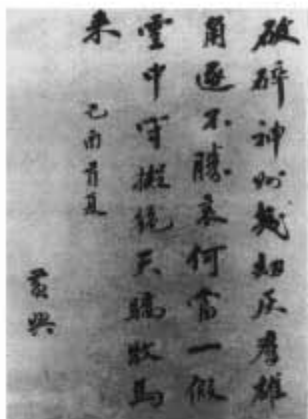 破碎神州幾劫灰羣雄
角逐不勝哀何當一假
雲中守擬絕天驕牧馬
來
己酉首夏
黃興